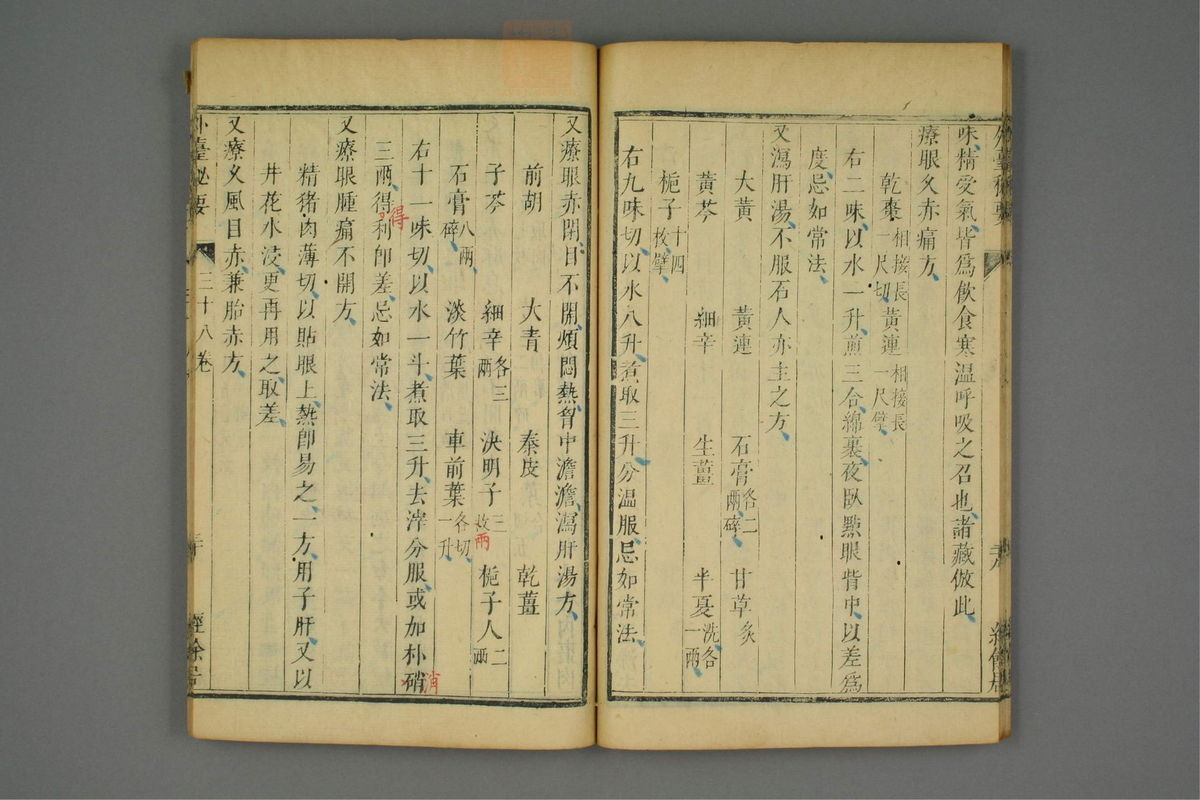 味精愛氣皆爲飲食寒温呼吸之召也諸藏倣此
療眼久赤痛方
乾棗一尺切相接長黃連一尺擘相接長
右二味以水一升煎三合綿裹夜臥點眼眥中以差爲
度忌如常法
又瀉肝湯不服石人亦主之方
大黃 黃連 石膏各二兩碎 甘草炙
黃芩 細辛 生薑 半夏洗各一兩
梔子十四枚擘
右九味切以水八升煮取三升分温服忌如常法
又療眼赤閉目不開煩悶熱胷中澹澹瀉肝湯方
前胡 大青 秦皮 乾薑
子芩 細辛各三兩 決明子三枚 兩 梔子人二兩
石膏八兩碎 淡竹葉 車前葉各切一升
右十一味切以水一斗煮取三升去滓分服或加朴硝 消
三兩得利即差忌如常法 得
又療眼腫痛不開方
精猪肉薄切以貼眼上熱即易之一方用子肝又以
井花水浸更再用之取差
又療久風目赤兼胎赤方
外臺秘要 三十八卷 經餘居